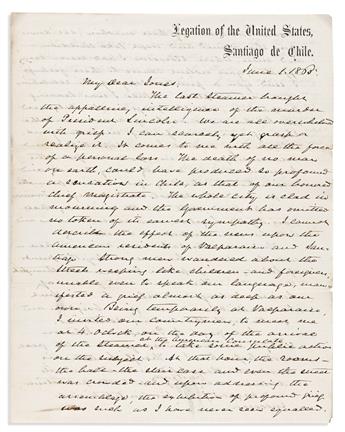 Legation of the United States,
Santiago de Chile.
June 1. 1865.
My dear Jones,
The last steamer brought
the appalling intelligence of the murder
of President Lincoln. We are all overwhelmed
with grief. I can scarcely yet grasp or
realize it. It comes to me with all the force
of a personal loss. The death of no man
on earth, could have produced so profound
a sensation in Chile, as that of our honored
chief Magistrate. The whole city is clad in
mourning and the Government has omitted
no token of its earnest sympathy. I cannot
describe the effect of the news upon the
American residents of Valparaiso and San-
tiago. Strong men wandered about the
streets weeping like children - and foreigners,
unable even to speak our language, mani-
fested a grief almost as deep as our
own. Being temporarily at Valparaiso,
I invited our Countrymen to meet me
at 4. Oclock, on the day of the arrival
at the American Consulate
of the steamer, to take some public action
on the subject. At that hour, the rooms -
the hall - the stair case and even the street
was crowded and upon addressing the
assemblage, the exhibition of profound grief
was such as I have never seen equalled.